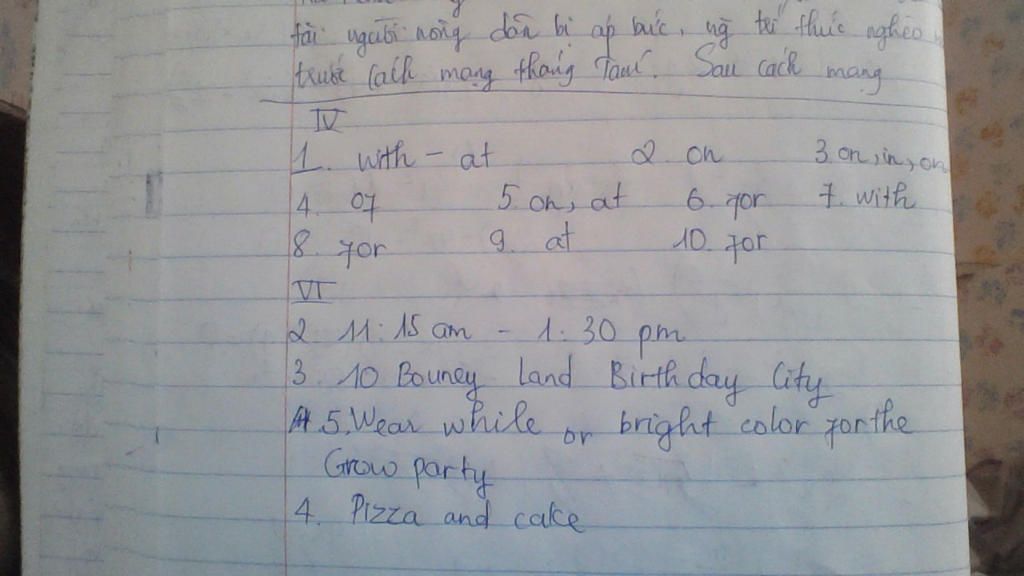 tài người nông dân bị áp bức, ng trí thức nghèo
trước Cách mạng tháng Tám. Sau cách mạng
IV
1. with - at 2 on 3. on, in, on
4. of 5. on, at 6. for 7. with
8. for 9. at 10. for
VI
2 11:15 am - 1:30 pm
3. 10 Bouncy Land Birthday City
5. Wear while or bright color for the
Grow party
4. Pizza and cake